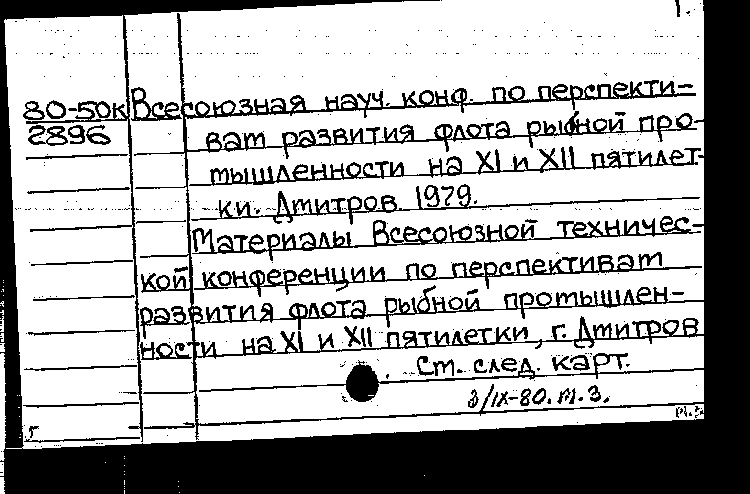 1.
80-50к Всесоюзная науч. конф. по перспекти-
2896 вам развития флота рыбной про-
мышленности на XI и XII пятилет-
ки. Дмитров 1979.
Материалы Всесоюзной техничес-
кой конференции по перспективам
развития флота рыбной промышлен-
ности на XI и XII пятилетки, г. Дмитров
. Ст. след. карт.
3/IX-80. М.З.
5